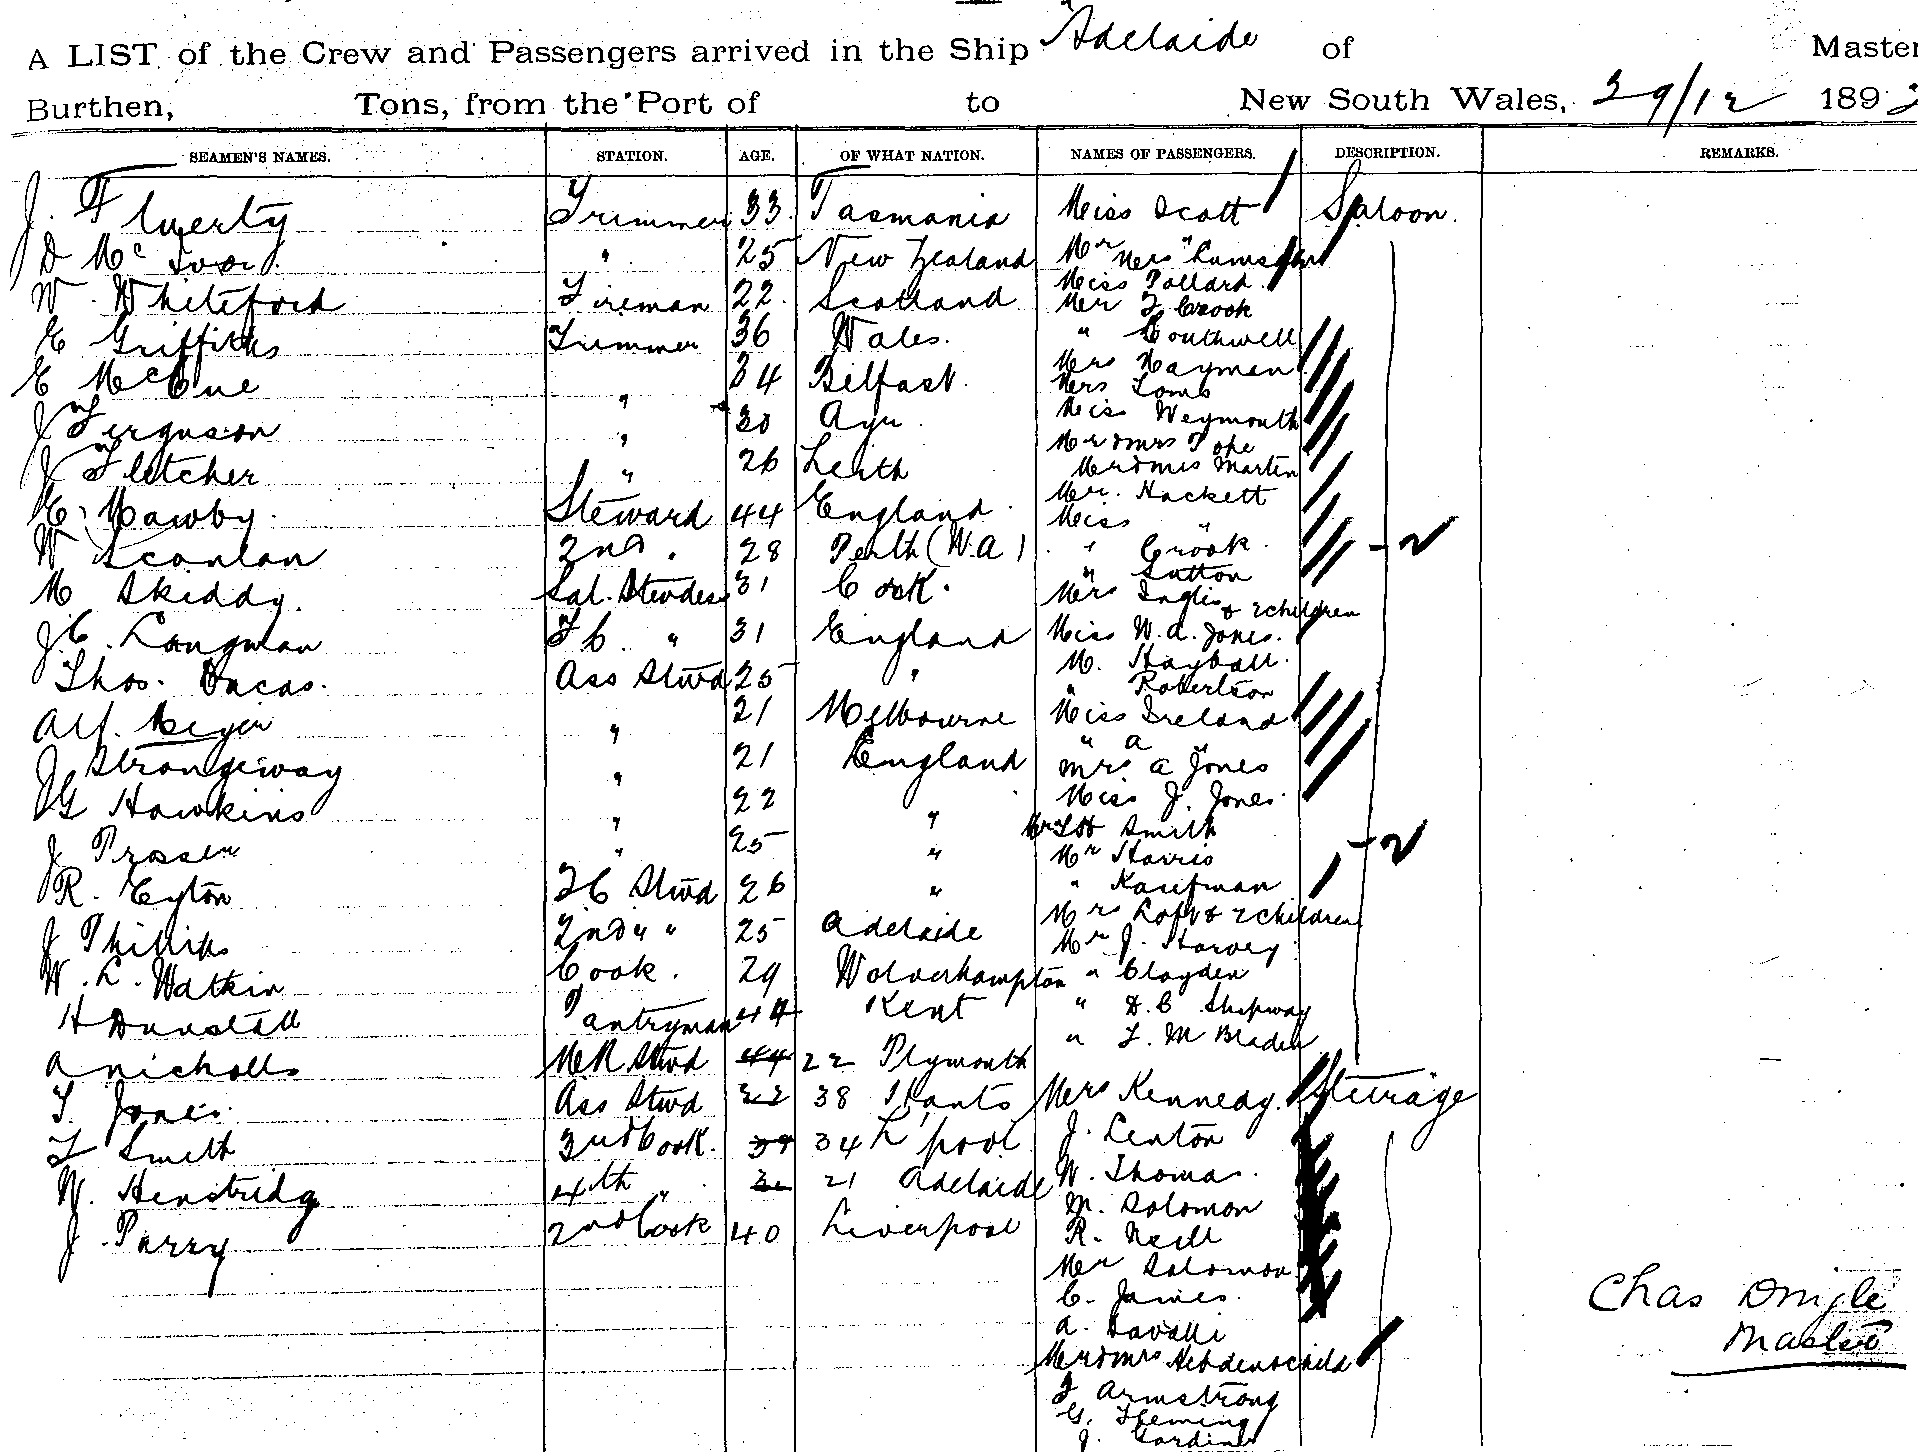 A LIST of the Crew and Passengers arrived in the Ship Adelaide of Master
Burthen, Tons, from the Port of to New South Wales, 29/12 189
SEAMEN'S NAMES. STATION. AGE. OF WHAT NATION. NAMES OF PASSENGERS. DESCRIPTION. REMARKS.
J. Fluerty Trimmer 33 Tasmania Miss Scott Saloon.
D McIvor. " 25 New Zealand Mr " Mrs
W. Whiteford Fireman 22 Scotland Miss Pollard.
Mr F Crook
E Griffiths Trimmer 36 Wales. " Southwell
E McCue " 34 Belfast. Mrs Hayman
Mrs
J Ferguson " 30 Ayr. Miss Weymouth
Mr & Mrs Pope
J Fletcher " 26 Leith Mr & Mrs Martin
E. Mawby. Steward 44 England. Mr. Hackett
Miss "
W Scanlan 2nd " 28 Perth (W.A) " Crook.
" Sutton
M Skiddy. Sal. Stewdess 31 Cork. Mrs Inglis & 2 children
J.C. Langman FC " 31 England Miss W.A. Jones.
M. Hayball.
Thos. Dacas. Ass Stwd 25 " " Robertson
Alf. " 21 Melbourne Miss Ireland
" A "
J Strangeway " 21 England Mrs A Jones
JG Hawkins " 22 " Miss J. Jones
Smith
J Prosser " 25 " Mr Harris
R. Eyton FC Stwd 26 " " Kaufman
Mrs Loft & 2 children
J Phillips 2nd " " 25 Adelaide Mr J. Harvey
W. L. Watkin Cook. 29 Wolverhampton " Clayden
H Dunstall Pantryman 44 Kent " D.C. Shipway
" F. M Bladen
A Nicholls MR Stwd 44 22 Plymouth
T. Jones Ass Stwd 22 38 Hants Mrs Kennedy. Steerage
T Smith 3rd Cook. 34 L'pool J. Lenton
W. Henstridg 4th " 21 Adelaide W. Thomas.
M. Solomon
J. Parry 2nd Cook 40 Liverpool R. Neill
Mr Solomon
C. James.
A.
Mr & Mrs Hebden & child
J Armstrong
G. Fleming
J. Gardiner
Chas
Master